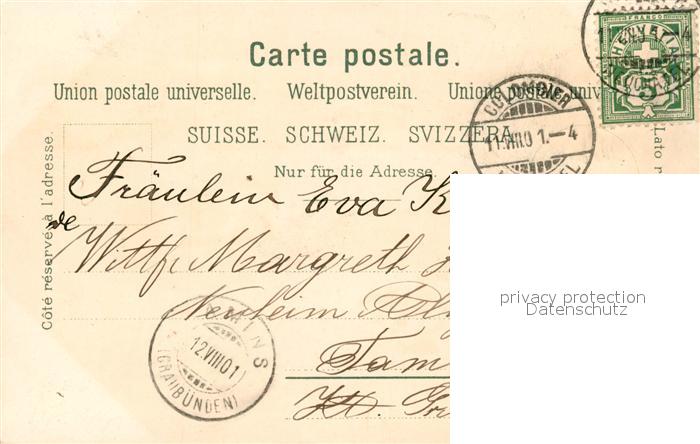 Carte postale.
Union postale universelle. Weltpostverein. Unione postale univ
SUISSE. SCHWEIZ. SVIZZERA.
Nur für die Adresse.
Côté réservé à l'adresse.
Lato r
FRANCO
HELVETIA
5
COLOMBIER
11.VIII.01.–4
EL
Fräulein Eva K
de
Wittf. Margreth
Tam
Kt. Gr
MINS
12.VIII.01
(GRAUBÜNDEN)
privacy protection
Datenschutz